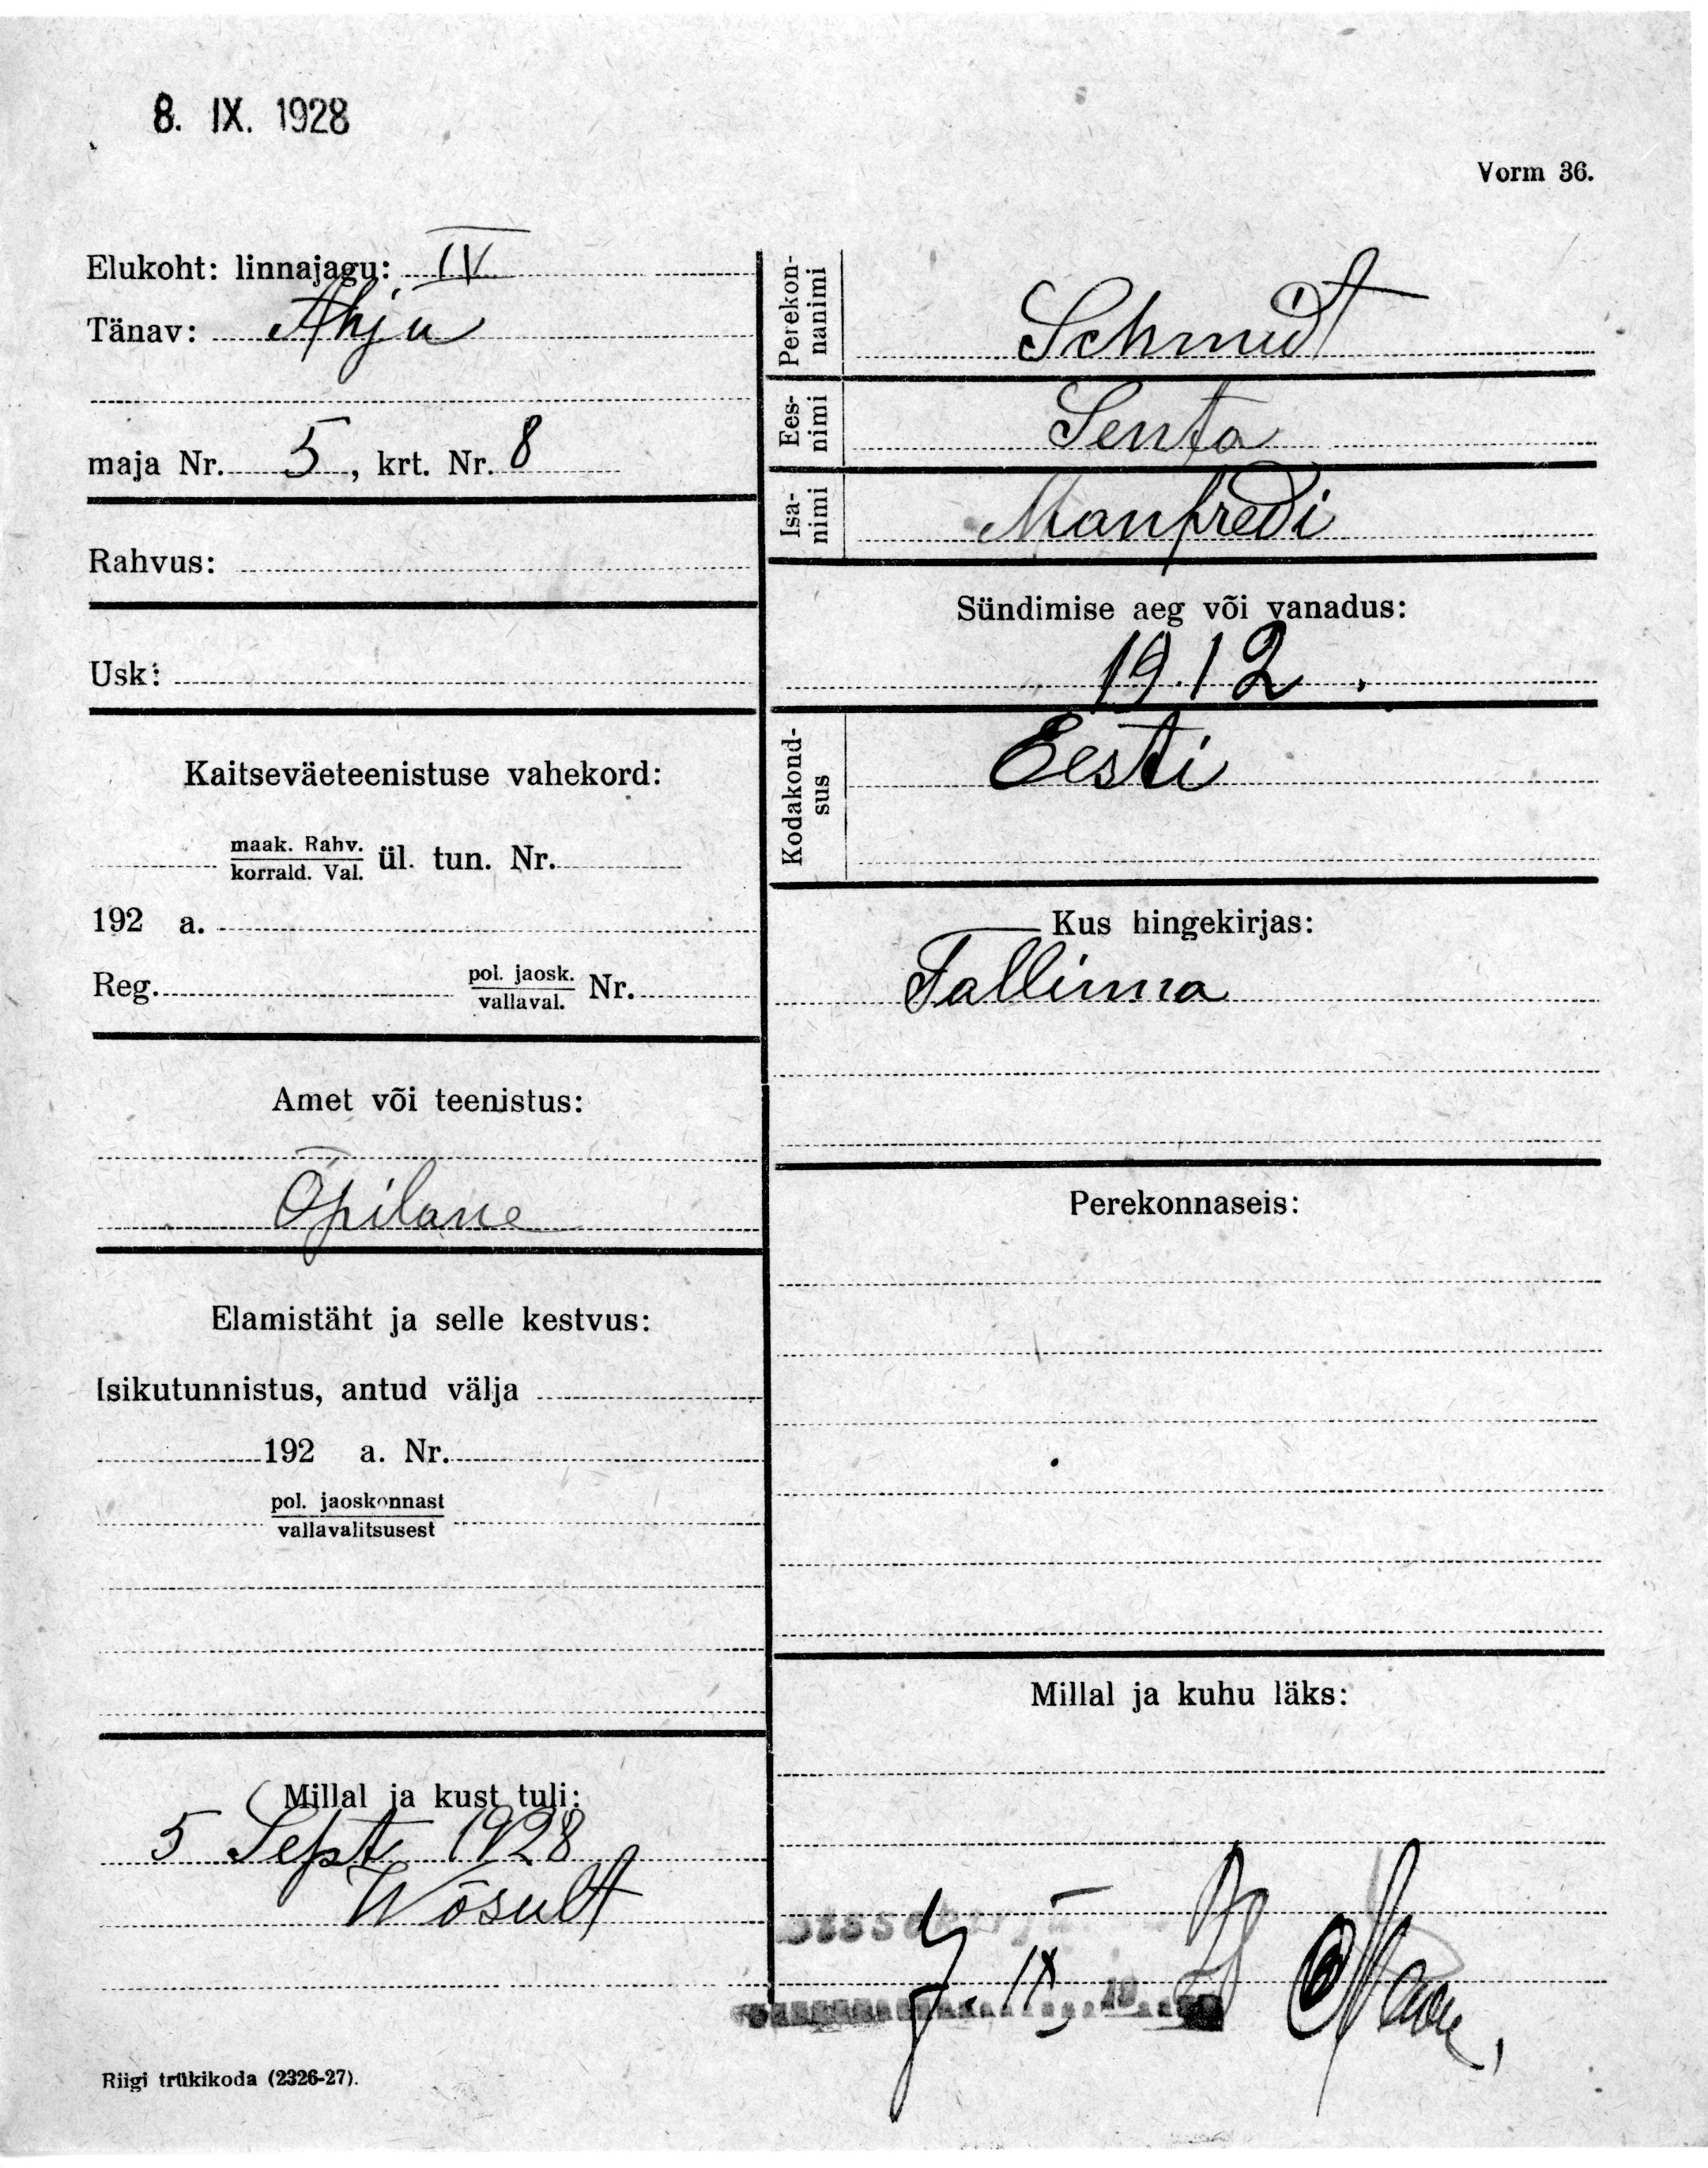 8. IX. 1928
Vorm 36.
Elukoht: linnajagu: IV
Tänav: Ahju
maja Nr. 5, krt. Nr. 8
Rahvus:
Usk:
Kaitseväeteenistuse vahekord:
maak. Rahv.
korrald. Val.
ül. tun. Nr.
192 a.
Reg. pol. jaosk.
vallaval. Nr.
Amet või teenistus:
Õpilane
Elamistäht ja selle kestvus:
Isikutunnistus, antud välja
192 a. Nr.
pol. jaoskonnast
vallavalitsusest
Millal ja kust tuli:
5 Sept. 1928
Wõsult
Riigi trükikoda (2326-27).
Perekon-
nanimi
Schmidt
Ees-
nimi
Senta
Isa-
nimi
Manfredi
Sündimise aeg või vanadus:
1912.
Kodakond-
sus
Eesti
Kus hingekirjas:
Tallinna
Perekonnaseis:
Millal ja kuhu läks:
IX